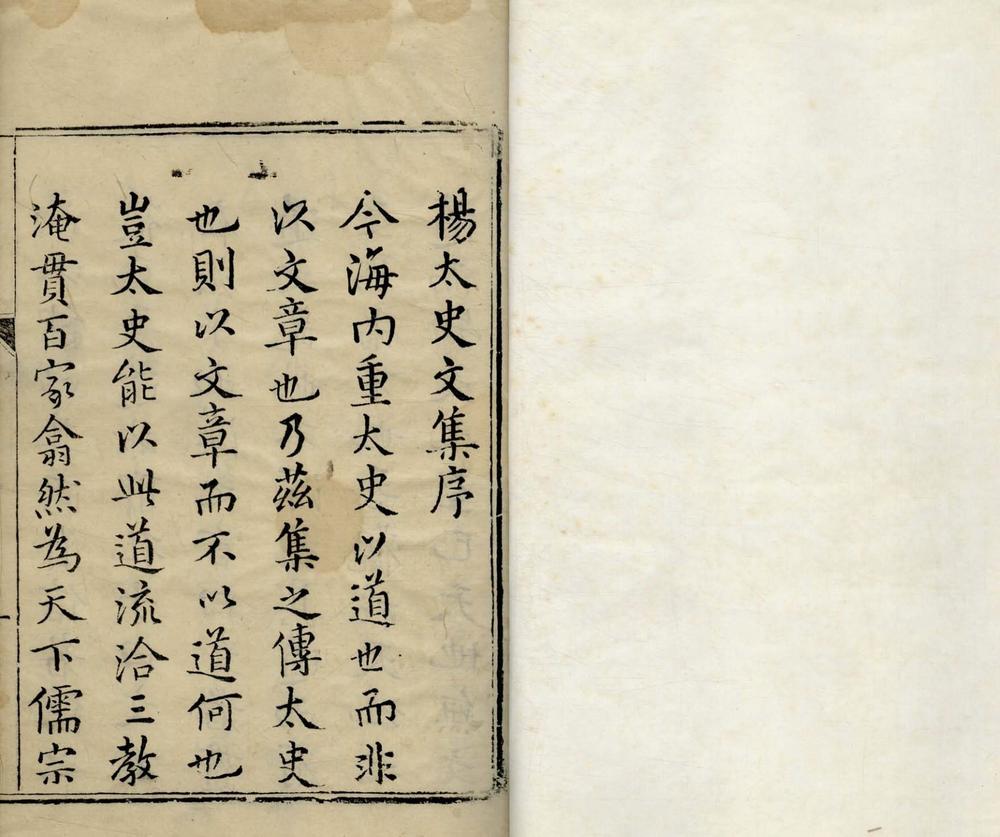 楊太史文集序
今海内重太史以道也而非
以文章也乃茲集之傳太史
也則以文章而不以道何也
豈太史能以此道流洽三教
淹貫百家翕然為天下儒宗